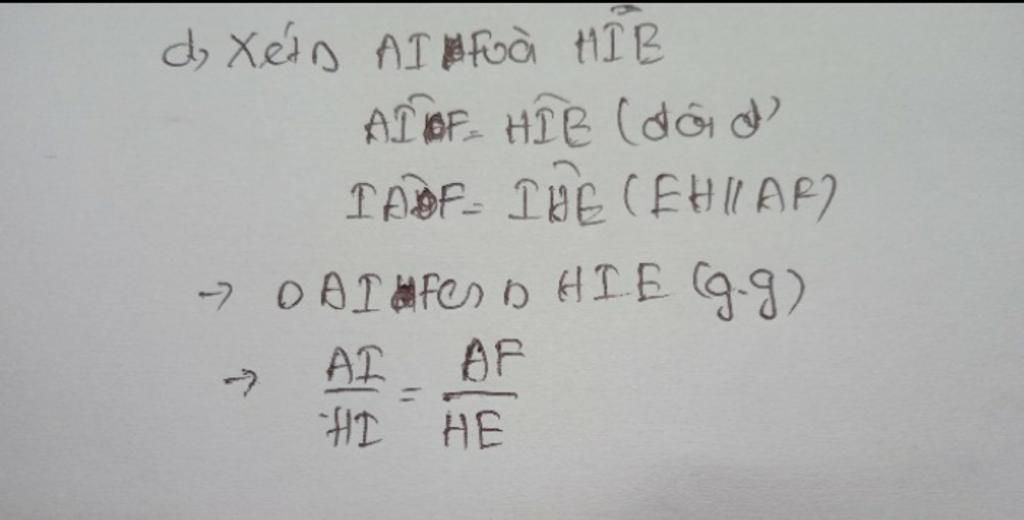 d, Xét Δ AIF và HIE
AIF = HIE (đối đ)
IAF = IHE (EH // AF)
→ Δ AIF ∽ Δ HIE (g.g)
→ AI/HI = AF/HE